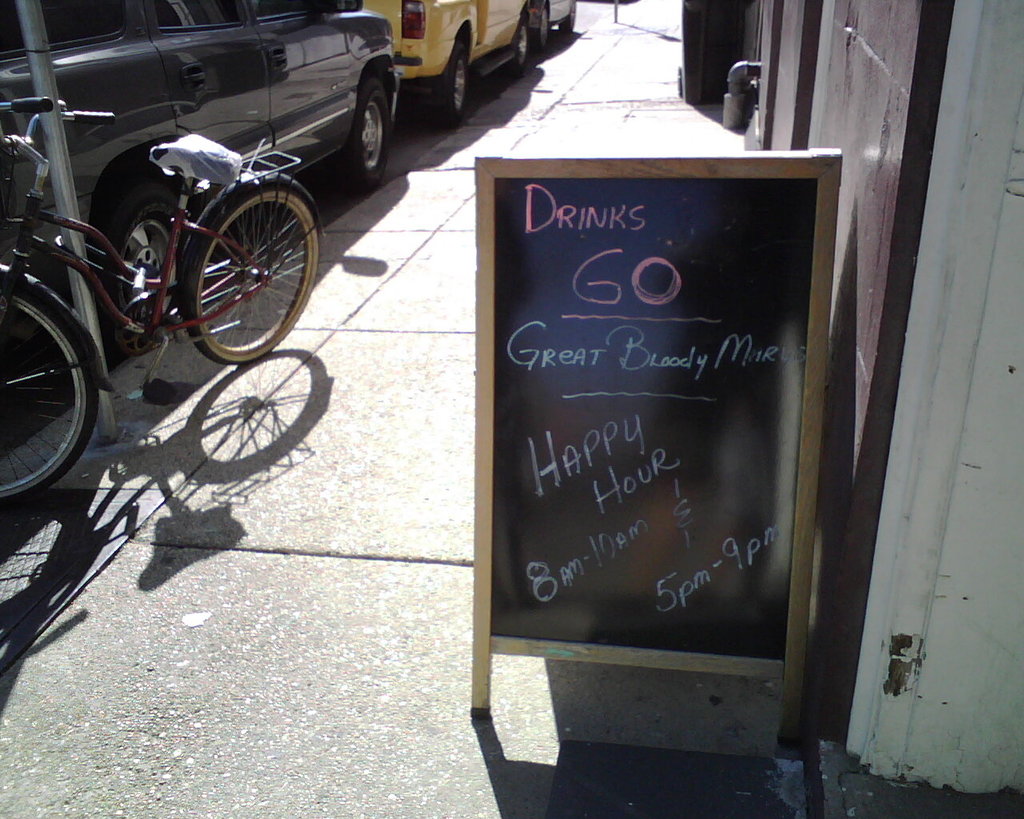 DRINKS
GO
GREAT BLOODY MARYS
HAPPY
HOUR
8AM-10AM
&
5pm-9pm